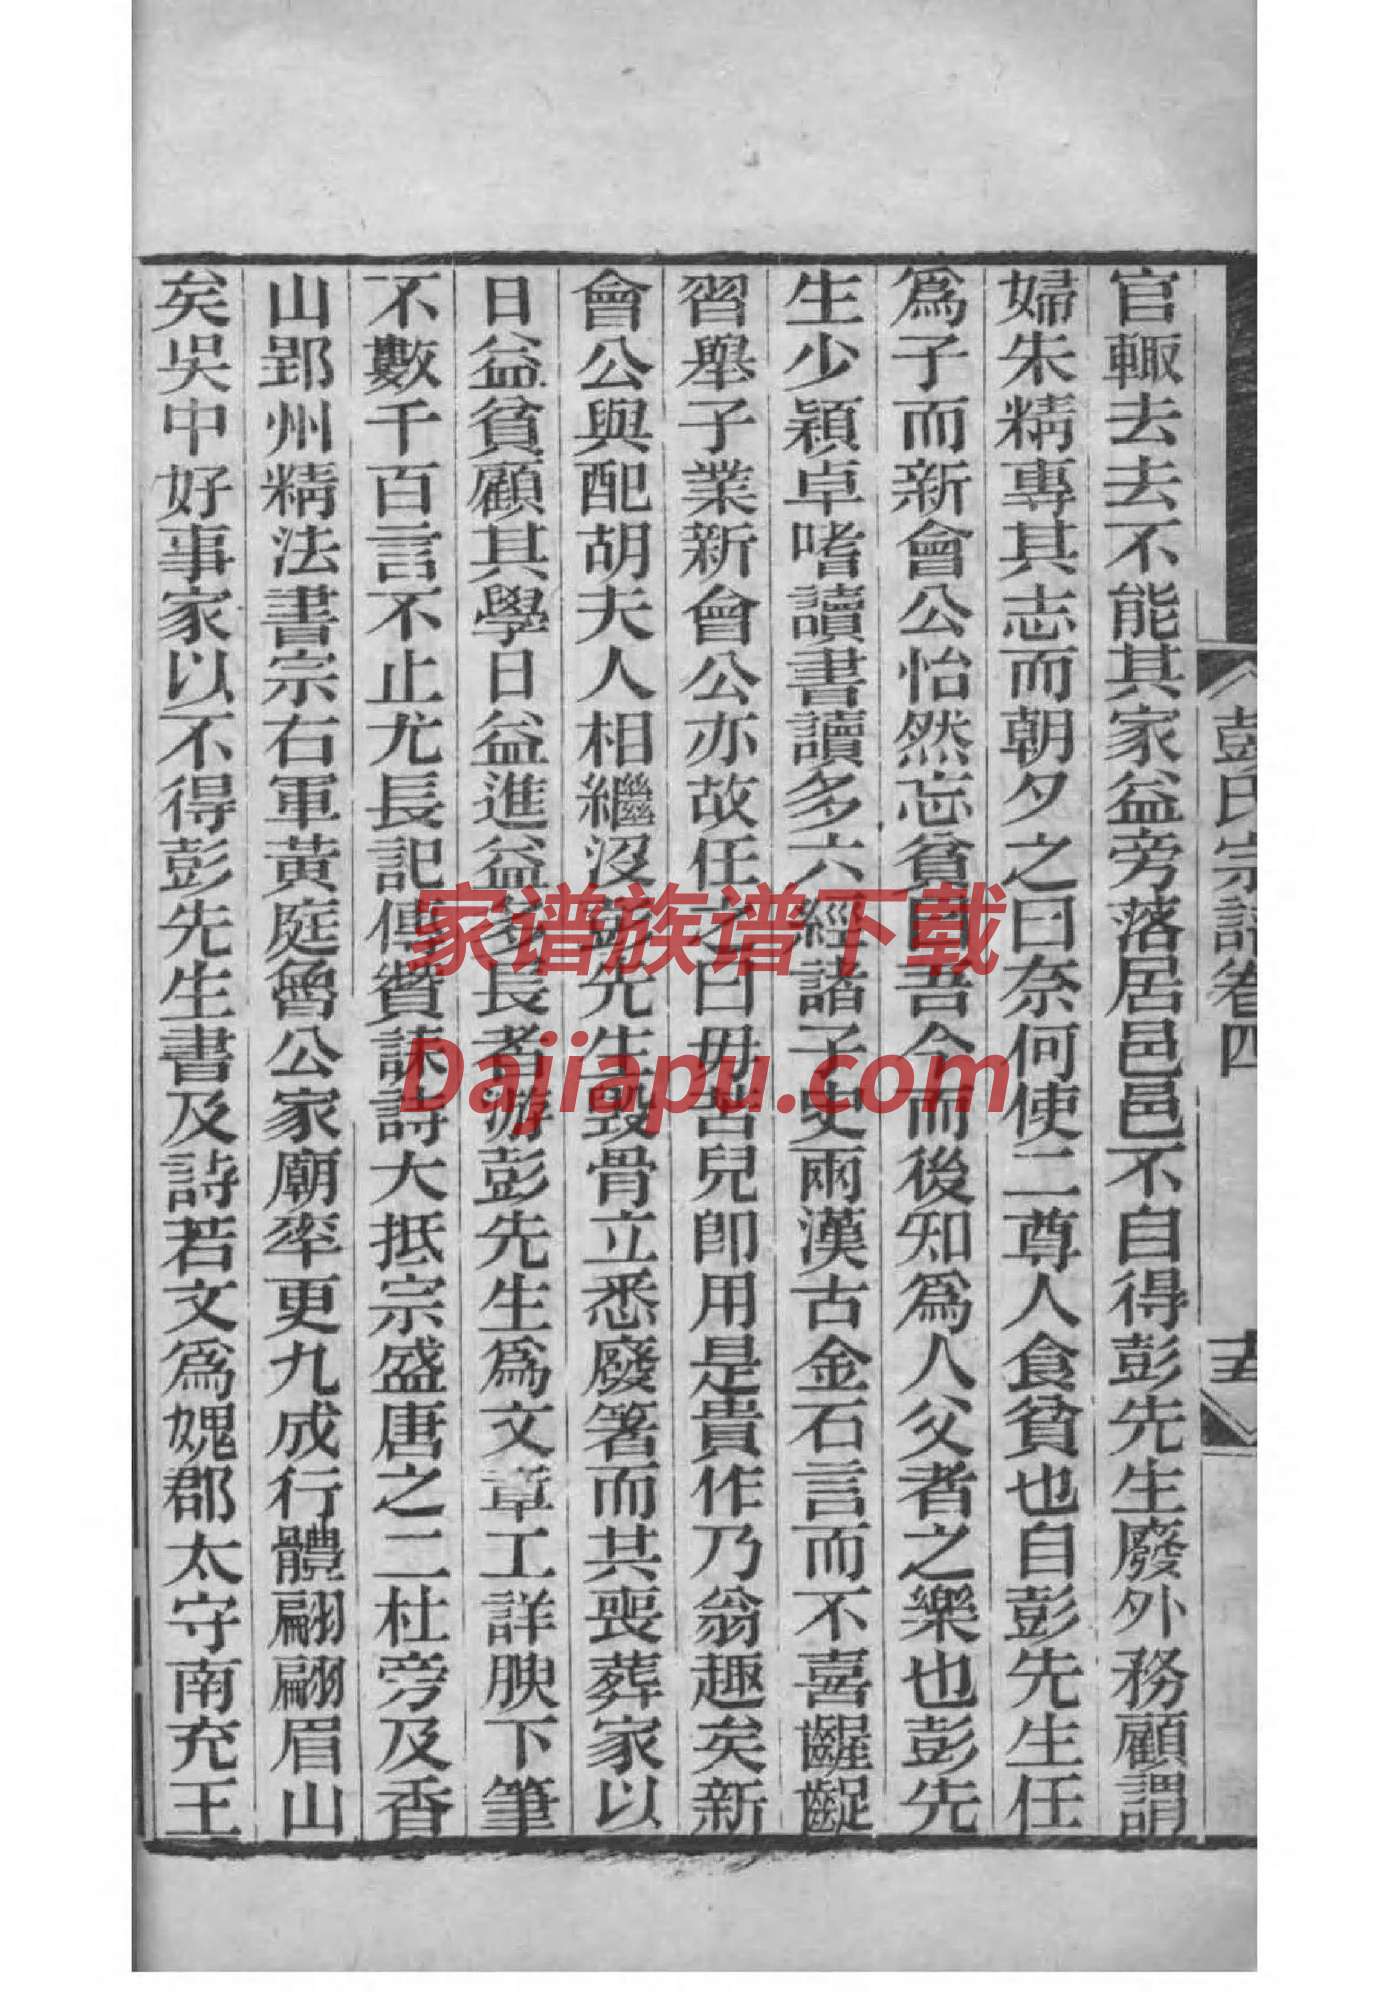 彭氏宗譜卷四
十五
官輙去去不能其家益旁落居邑邑不自得彭先生廢外務顧謂
婦朱精專其志而朝夕之曰奈何使二尊人食貧也自彭先生任
爲子而新會公怡然忘貧曰吾今而後知爲人父者之樂也彭先
生少穎卓嗜讀書讀多六經諸子史兩漢古金石言而不喜齷齪
習舉子業新會公亦故任之曰毋苦兒卽用是貴作乃翁趣矣新
會公與配胡夫人相繼沒彭先生毀骨立悉廢箸而共喪葬家以
日益貧顧其學日益進益多長者游彭先生爲文章工詳腴下筆
不數千百言不止尤長記傳贊誄詩大抵宗盛唐之二杜旁及香
山郢州精法書宗右軍黃庭魯公家廟率更九成行體翩翩眉山
矣吳中好事家以不得彭先生書及詩若文爲媿郡太守南充王
家谱族谱下载
Dajiapu.com